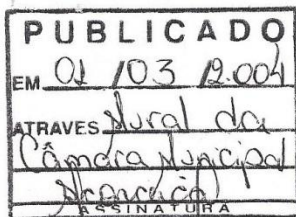 PUBLICADO
EM 01 / 03 / 2.004
ATRAVES Mural da
Câmara Municipal
ASSINATURA